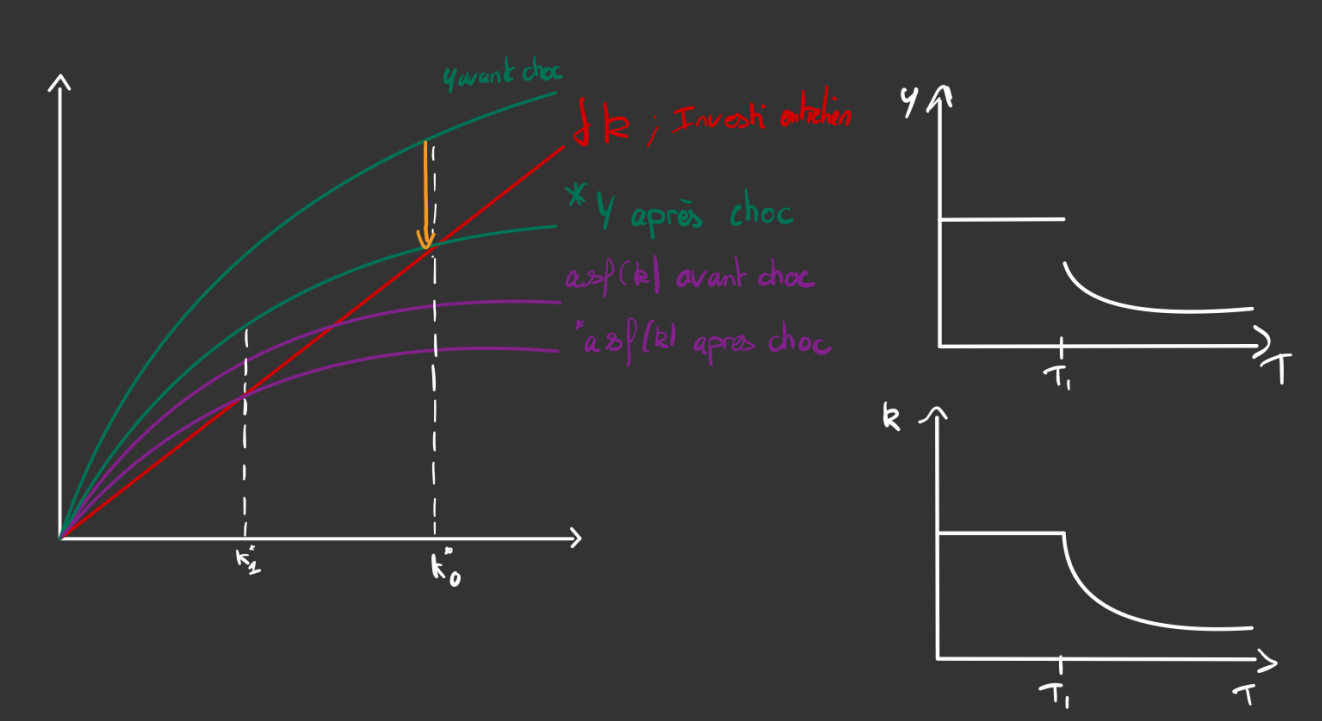 y avant choc
δk ; Investi entretien
* y après choc
asf(k) avant choc
*asf(k) après choc
k*1
k*0
y
T
T1
k
T1
T